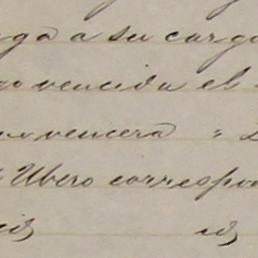 ga a su cargo
vencida el
vencerá "
Ubero correspon
id id